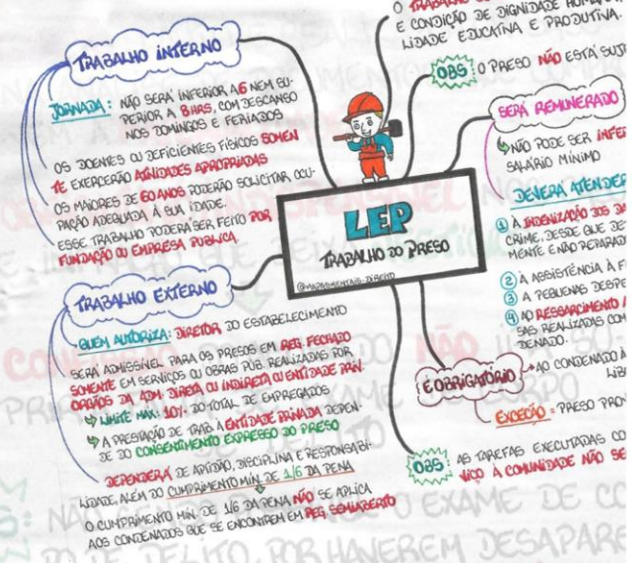 TRABALHO INTERNO
JORNADA: NÃO SERÁ INFERIOR A 6 NEM SU-
PERIOR A 8HRS, COM DESCANSO
NOS DOMINGOS E FERIADOS
OS DOENTES OU DEFICIENTES FÍSICOS SOMEN
TE EXERCERÃO ATIVIDADES APROPRIADAS
OS MAIORES DE 60 ANOS PODERÃO SOLICITAR OCU-
PAÇÃO ADEQUADA À SUA IDADE.
ESSE TRABALHO PODERÁ SER FEITO POR
FUNDAÇÃO OU EMPRESA PÚBLICA
TRABALHO EXTERNO
QUEM AUTORIZA: DIRETOR DO ESTABELECIMENTO
SERÁ ADMISSÍVEL PARA OS PRESOS EM REG. FECHADO
SOMENTE EM SERVIÇOS OU OBRAS PÚB. REALIZADAS POR
ORGÃOS DA ADM. DIRETA OU INDIRETA OU ENTIDADE PRIV.
LIMITE MAX: 10% DO TOTAL DE EMPREGADOS
A PRESTAÇÃO DE TRAB. À ENTIDADE PRIVADA DEPEN-
DE DO CONSENTIMENTO EXPRESSO DO PRESO
DEPENDERÁ DE APTIDÃO, DISCIPLINA E RESPONSABI-
LIDADE, ALÉM DO CUMPRIMENTO MÍN. DE 1/6 DA PENA
O CUMPRIMENTO MÍN. DE 1/6 DA PENA NÃO SE APLICA
AOS CONDENADOS QUE SE ENCONTREM EM REG. SEMIABERTO
LEP
TRABALHO DO PRESO
@MAPASMENTAIS.DIREITO
O TRABALHO
E CONDIÇÃO DE DIGNIDADE
LIDADE EDUCATIVA E PRODUTIVA.
OBS: O PRESO NÃO ESTÁ
SERÁ REMUNERADO
NÃO PODE SER
SALÁRIO MÍNIMO
DEVERÁ ATENDER
1 À INDENIZAÇÃO DOS
CRIME, DESDE QUE
MENTE E NÃO
2 À ASSISTÊNCIA À
3 A PEQUENAS
4 AO RESSARCIMENTO
SAS REALIZADAS COM
DENADO.
É OBRIGATÓRIO
AO CONDENADO À
EXCEÇÃO = PRESO
OBS: AS TAREFAS EXECUTADAS
VIÇO À COMUNIDADE NÃO SE